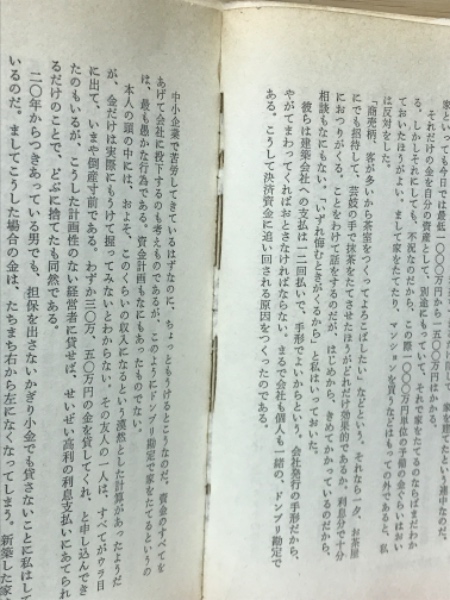 家といっても今日では最低一〇〇〇万円から一五〇〇万円はかかる。
それだけの金を自分の資産として、別途にもっていて、それで家をたてるのならばまだわか
る。しかしそれにしても、不況なのだから、この際一〇〇〇万円単位の予備の金ぐらいはおい
ておいたほうがよい。まして家をたてたり、マンションを買うなどはもっての外であると、私
は反対をした。
「商売柄、客が多いから茶室をつくってよろこばしたい」などという。それなら一夕、お茶屋
にでも招待して、芸妓の手で抹茶をたてさせたほうがどれだけ効果的であるか。利息分で十分
におつりがくる。ことをわけて話をするのだが、はじめから、きめてかかっているのだから、
相談もなにもない。「いずれ悔むときがくるから」と私はいっておいた。
彼らは建築会社への支払は一二回払いで、手形でよいからという。会社発行の手形だから、
やがてまわってくればおとさなければならない。まるで会社も個人も一緒の、ドンブリ勘定で
ある。こうして決済資金に追い回される原因をつくったのである。
中小企業で苦労してきているはずなのに、ちょっともうけるとこうなのだ。資金のすべてを
あげて会社に投下するのも考えものであるが、このようにドンブリ勘定で家をたてるというの
は、最も愚かな行為である。資金計画もなにもあったものでない。
本人の頭の中には、およそ、このくらいの収入になるという漠然とした計算があったようだ
が、金だけは実際にもうけて掘ってみないとわからない。その友人の一人は、すべてがウラ目
に出て、いまや倒産寸前である。わずか三〇万、五〇万円の金を貸してくれ、と申し込んでき
たのもいるが、こうした計画性のない経営者に貸せば、せいぜい高利の利息支払いにあてられ
るだけのことで、どぶに捨てたも同然である。
二〇年からつきあっている男でも、担保を出さないかぎり小金でも貸さないことに私はして
いるのだ。ましてこうした場合の金は、たちまち右から左になくなってしまう。新築した家